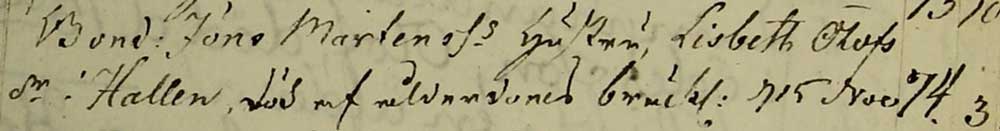 Bond: Jöns Mårtens Hustru, Lisbeth Olofs
dr i Hallen, död af ålderdoms bräckl: 15 Nov 74. 3